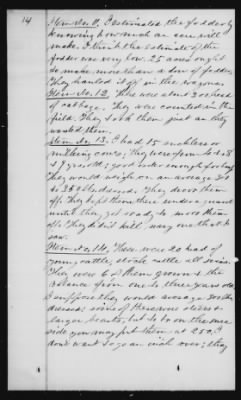 14
Item No. 11. I estimated the fodder by
knowing how much an acre will
make. I think the estimate of the
fodder was very low. 25 acres ought
to make more than a ton of fodder.
They hauled it off in the wagons.
Item No. 12. There was about 200 head
of cabbage. They were counted in the
field. They took them just as they
wanted them.
Item No. 13. I had 15 sucklers or
milking cows; they were from 4 to 8
& 9 years old; good enough for beef
They would weigh on an average
They drove them
off. They kept them there under guard
until they got ready to move them
off. They didn't kill any one that I
saw.
Item No. 14. There were 20 head of
young cattle, stock cattle all sizes.
They were 6 of them grown & the
balance from one to three years old.
I suppose they would average
dressed; some of these were steers &
larger beasts; but to be on the sure
side you may put them at 250; I
don't want to go an inch over; they